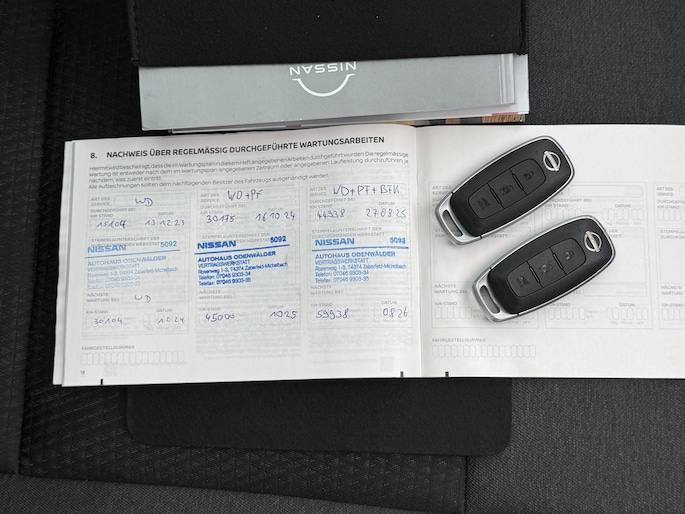 NISSAN
8. NACHWEIS ÜBER REGELMÄSSIG DURCHGEFÜHRTE WARTUNGSARBEITEN
Hiermit wird bescheinigt, dass die im Wartungsplan in diesem Heft angegebenen Arbeiten durchgeführt wurden. Die regelmässige
Wartung ist entweder nach dem im Wartungsplan angegebenen Zeitraum oder angegebenen Laufleistung durchzuführen, je
nachdem, was zuerst eintritt.
Alle Aufzeichnungen sollten dem nachfolgenden Besitzer des Fahrzeugs ausgehändigt werden.
ART DES
SERVICE WD
DURCHGEFÜHRT BEI
KM-STAND DATUM
15104 13.12.23
STEMPEL/UNTERSCHRIFT DER
NISSAN 5092
AUTOHAUS ODENWÄLDER
VERTRAGSWERKSTATT
Rosenweg 1-3, 74374 Zaberfeld-Michelbach
Telefon: 07046 9303-34
Telefax: 07046 9303-35
NÄCHSTE
WARTUNG BEI: WD
KM-STAND DATUM
30104 12.24
FAHRGESTELLNUMMER
ART DES
SERVICE WD+PF
DURCHGEFÜHRT BEI
KM-STAND DATUM
30175 16.10.24
NISSAN 5092
AUTOHAUS ODENWÄLDER
VERTRAGSWERKSTATT
Rosenweg 1-3, 74374 Zaberfeld-Michelbach
Telefon: 07046 9303-34
Telefax: 07046 9303-35
NÄCHSTE
WARTUNG BEI:
KM-STAND DATUM
45000 10.25
ART DES
SERVICE
DURCHGEFÜHRT BEI
KM-STAND DATUM
44938 27.08.25
NISSAN 5092
AUTOHAUS ODENWÄLDER
VERTRAGSWERKSTATT
Rosenweg 1-3, 74374 Zaberfeld-Michelbach
Telefon: 07046 9303-34
Telefax: 07046 9303-35
NÄCHSTE
WARTUNG BEI:
KM-STAND DATUM
59938 08.26
FAHRGESTELLNUMMER